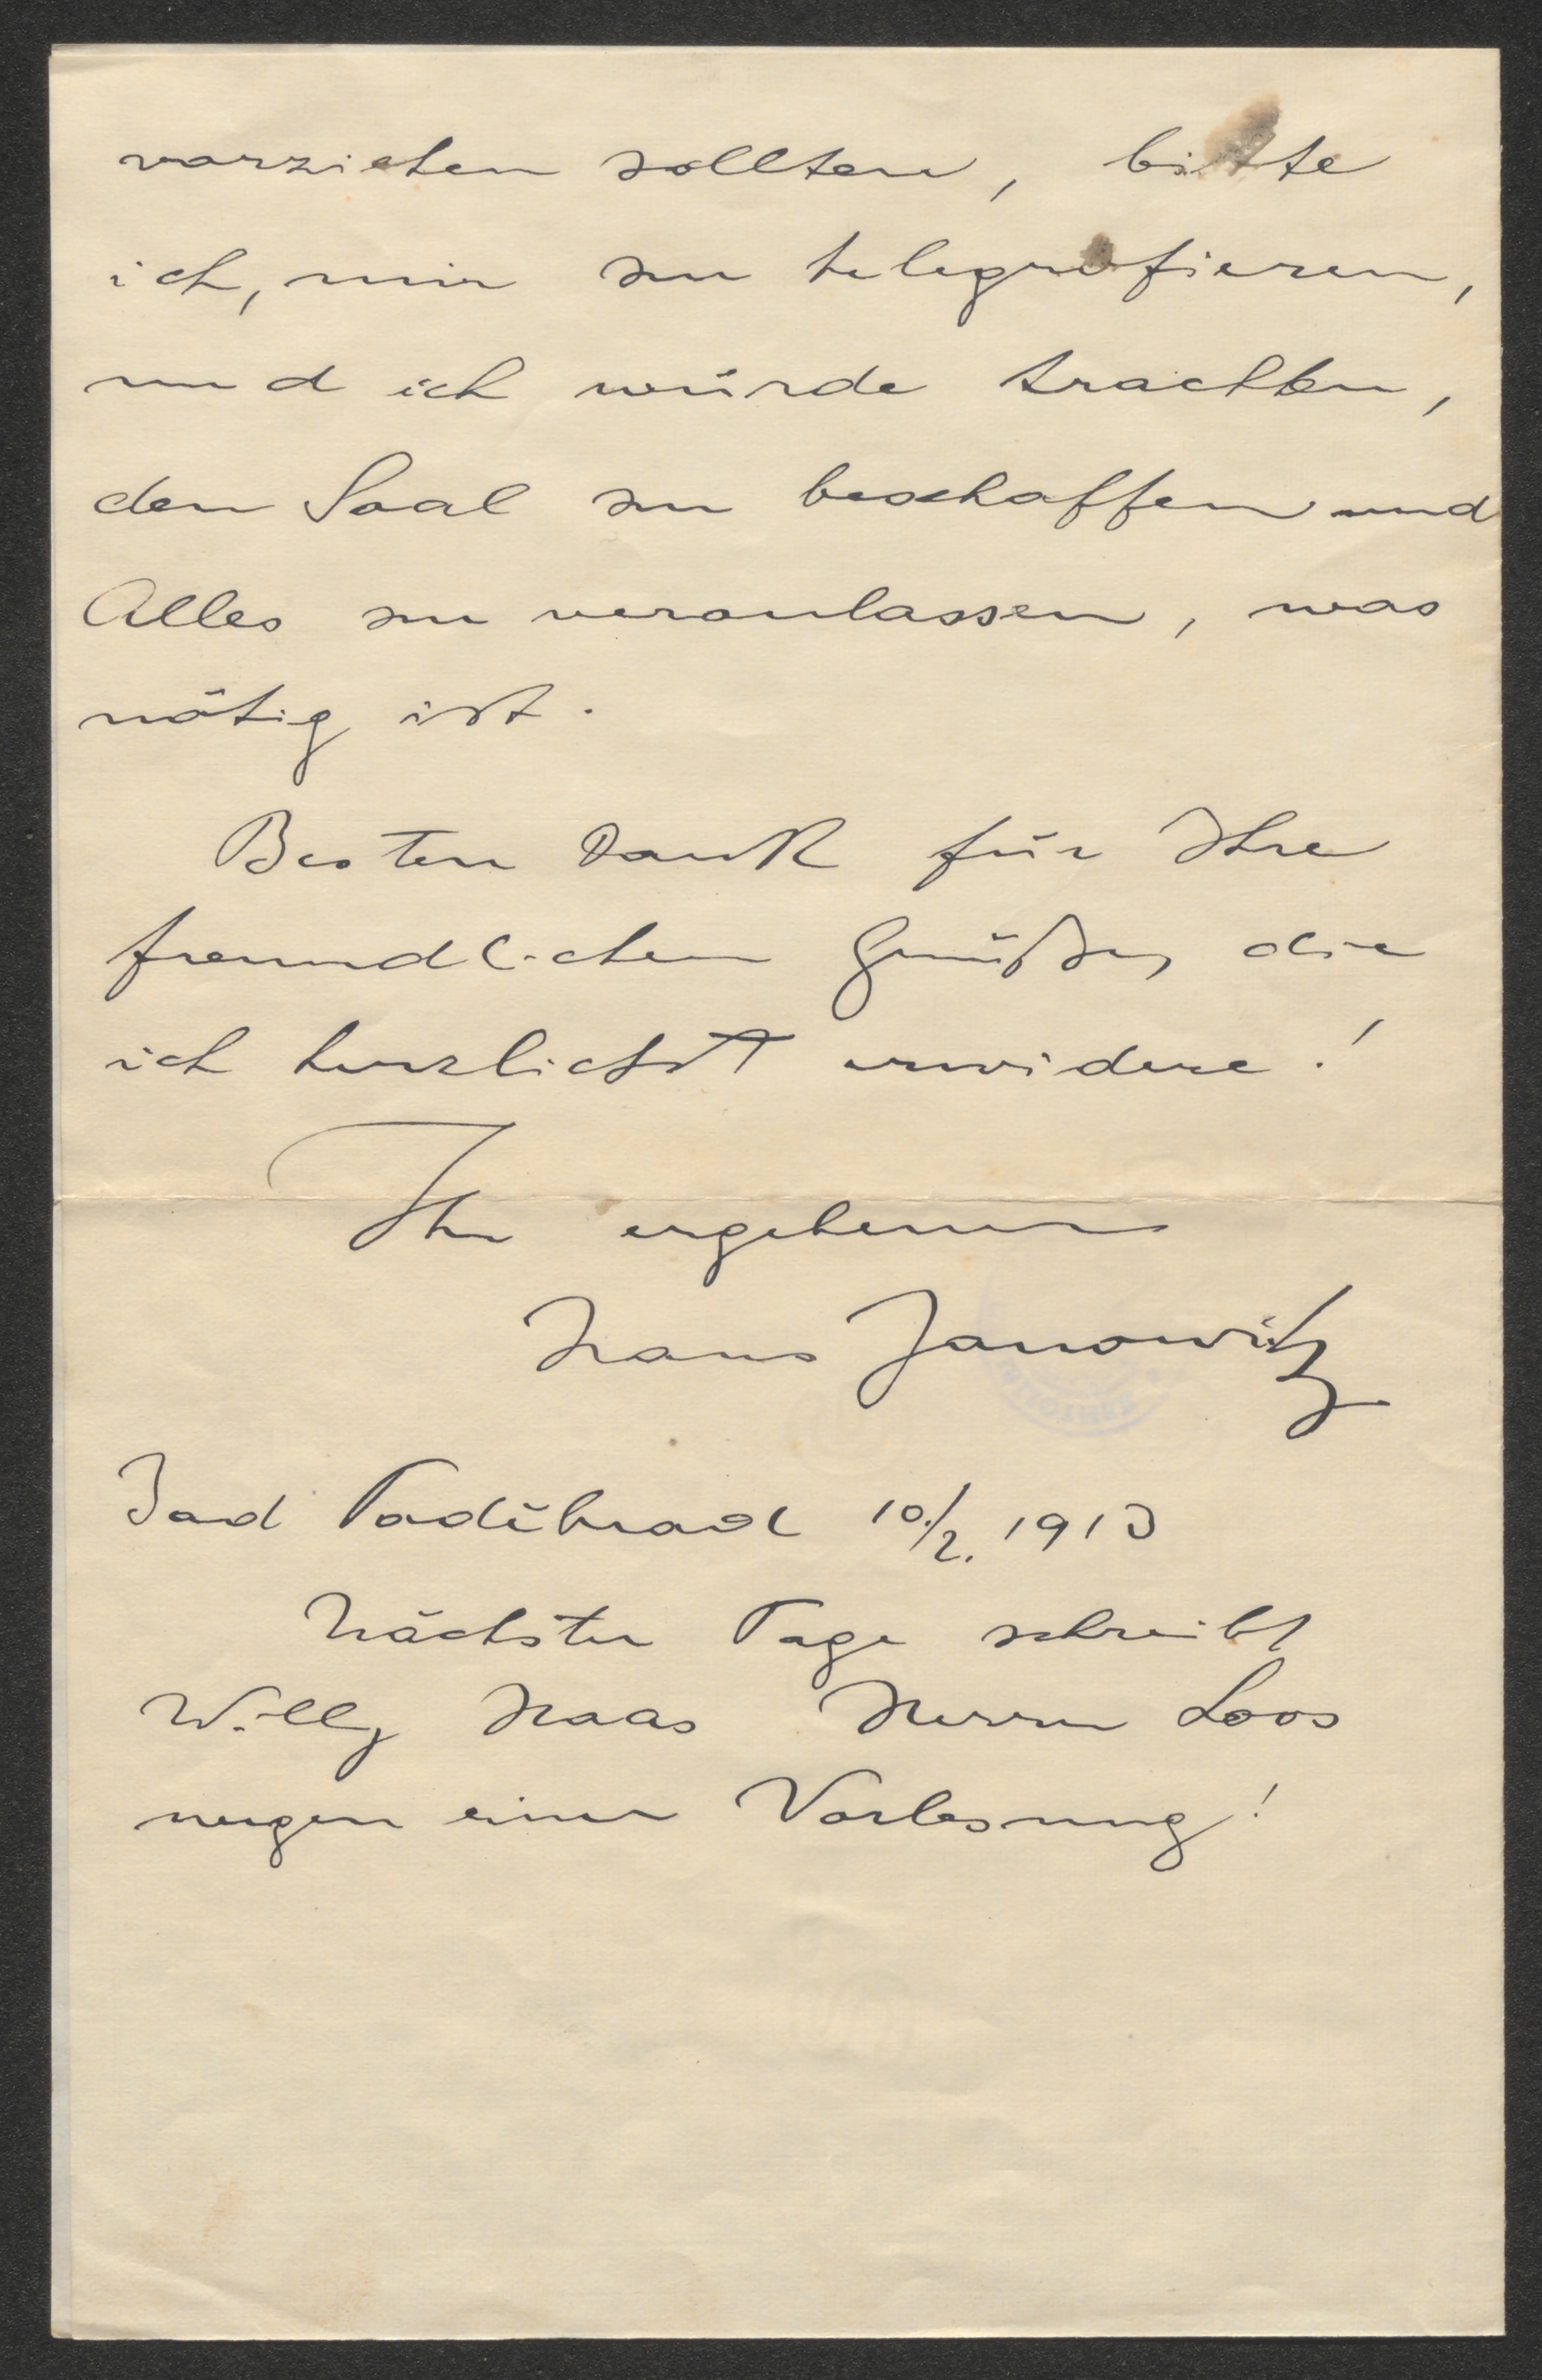 vorziehen sollten, bitte
ich, mir zu telegrafieren,
und ich würde trachten,
den Saal zu beschaffen und
Alles zu veranlassen, was
nötig ist.
Besten Dank für Ihre
freundlichen Grüße, die
ich herzlichst erwidere!
Ihr ergebener
Hans Janowitz
Bad Poděbrad 10./2. 1913
Nächster Tage schreibt
Willy Haas Herrn Loos
wegen einer Vorlesung!